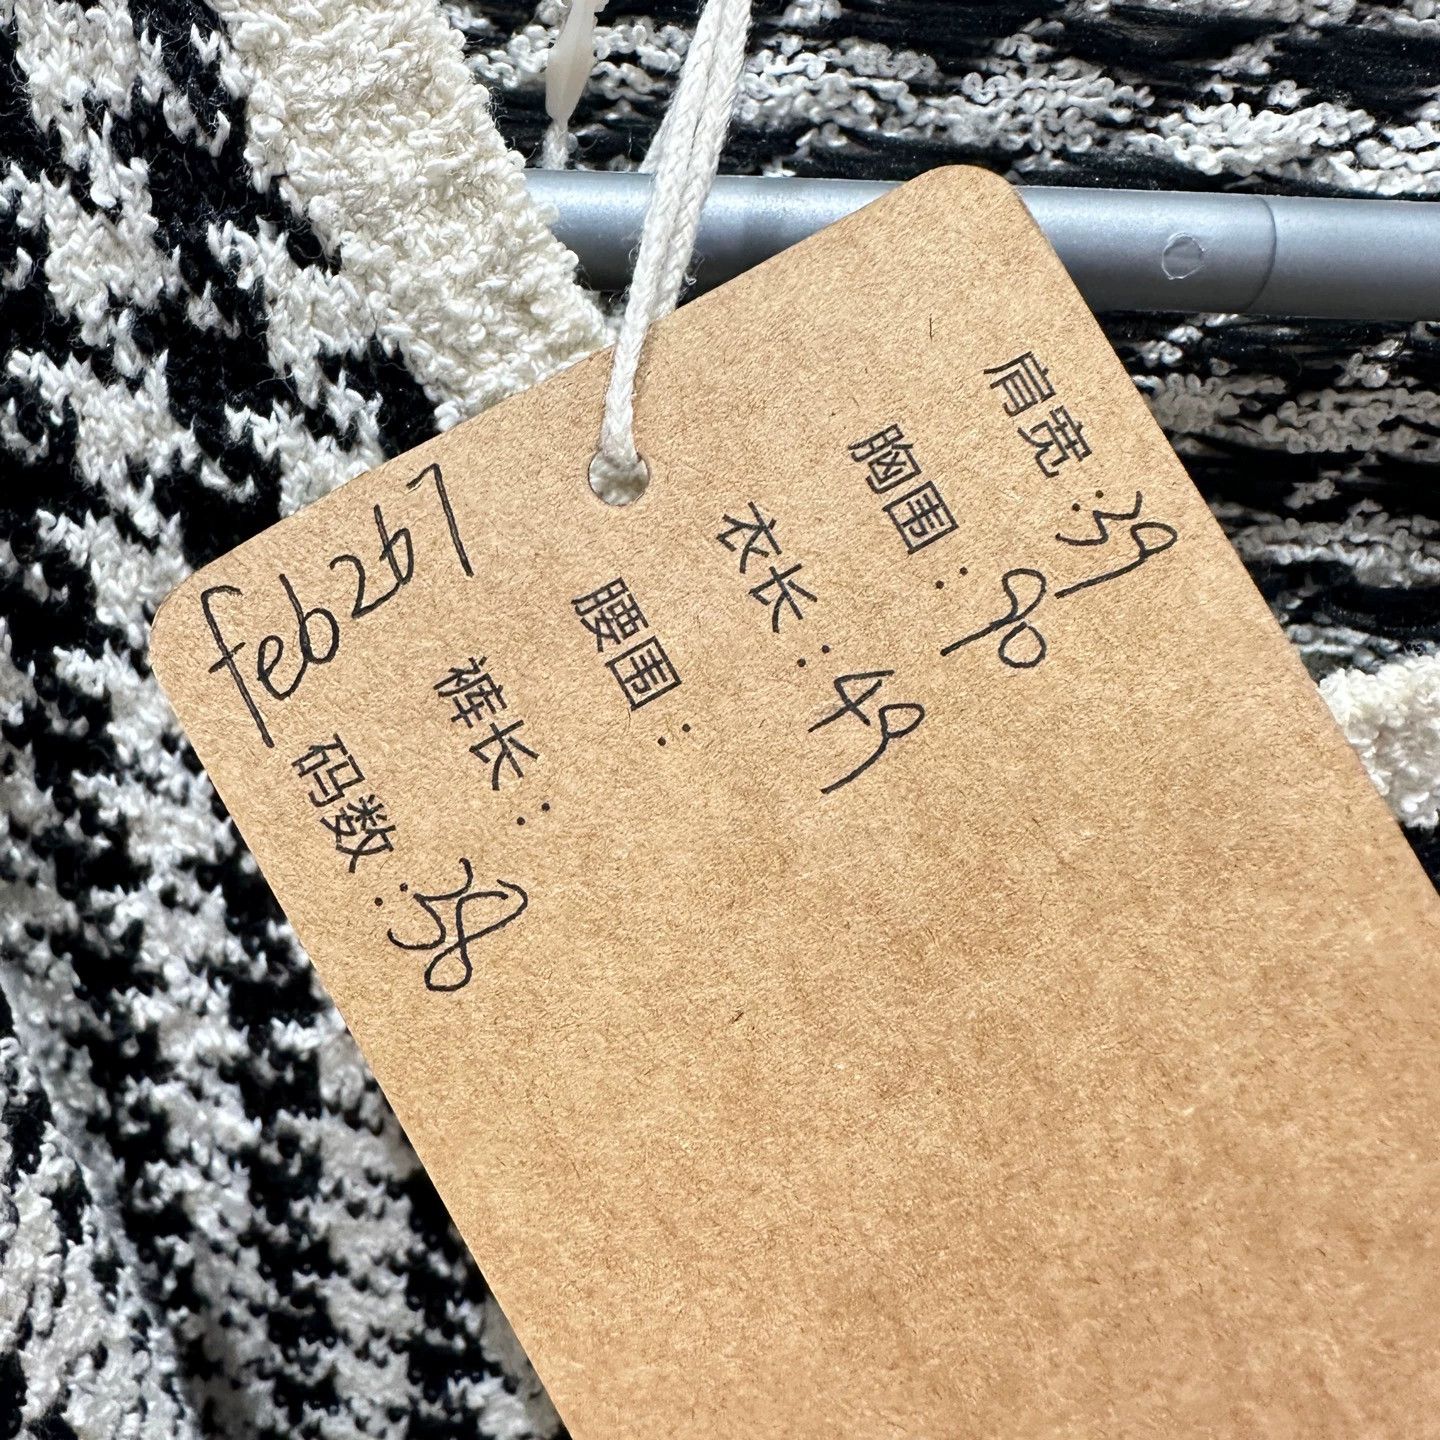 肩宽:39
胸围:90
衣长:49
腰围:
裤长:
码数:38
feb267